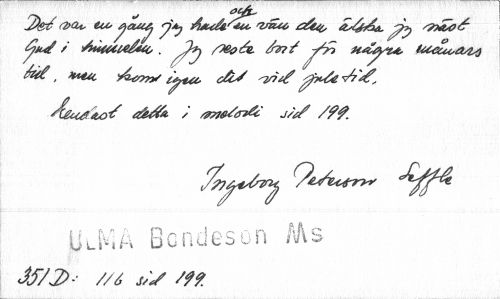 Det var en gång jag hade också en vän den älska jag näst
Gud i himmelen. Jag reste bort för några månars
tid, men kom igen dit vid juletid.
Endast detta i melodi sid 199.
Ingeborg Peterson Seffle
ULMA Bondeson Ms
351 D: 116 sid 199.